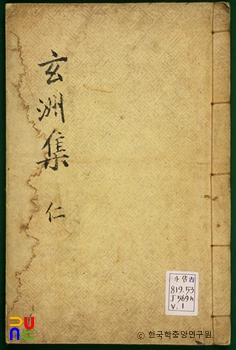 玄洲集
仁
819.53
V. 1
© 한국학중앙연구원